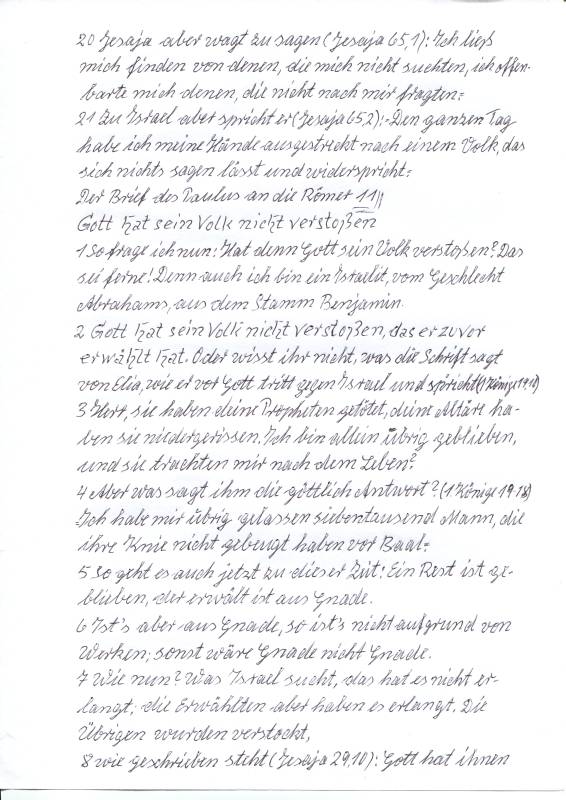 20 Jesaja aber wagt zu sagen (Jesaja 65,1): Ich ließ
mich finden von denen, die mich nicht suchten, ich offen-
barte mich denen, die nicht nach mir fragten.
21 Zu Israel aber spricht er (Jesaja 65,2): Den ganzen Tag
habe ich meine Hände ausgestreckt nach einem Volk, das
sich nichts sagen lässt und widerspricht.
Der Brief des Paulus an die Römer 11
Gott hat sein Volk nicht verstoßen
1 So frage ich nun: Hat denn Gott sein Volk verstoßen? Das
sei ferne! Denn auch ich bin ein Israelit, vom Geschlecht
Abrahams, aus dem Stamm Benjamin.
2 Gott hat sein Volk nicht verstoßen, das er zuvor
erwählt hat. Oder wisst ihr nicht, was die Schrift sagt
von Elia, wie er vor Gott tritt gegen Israel und spricht (1 Könige 19,10)
3 Herr, sie haben deine Propheten getötet, deine Altäre ha-
ben sie niedergerissen. Ich bin allein übrig geblieben,
und sie trachten mir nach dem Leben?
4 Aber was sagt ihm die göttlich Antwort? (1 Könige 19,18)
Ich habe mir übrig gelassen siebentausend Mann, die
ihre Knie nicht gebeugt haben vor Baal.
5 So geht es auch jetzt zu dieser Zeit: Ein Rest ist ge-
blieben, der erwält ist aus Gnade.
6 Ist's aber aus Gnade, so ist's nicht aufgrund von
Werken; sonst wäre Gnade nicht Gnade.
7 Wie nun? Was Israel sucht, das hat es nicht er-
langt; die Erwählten aber haben es erlangt. Die
Übrigen wurden verstockt,
8 wie geschrieben steht (Jesaja 29,10): Gott hat ihnen